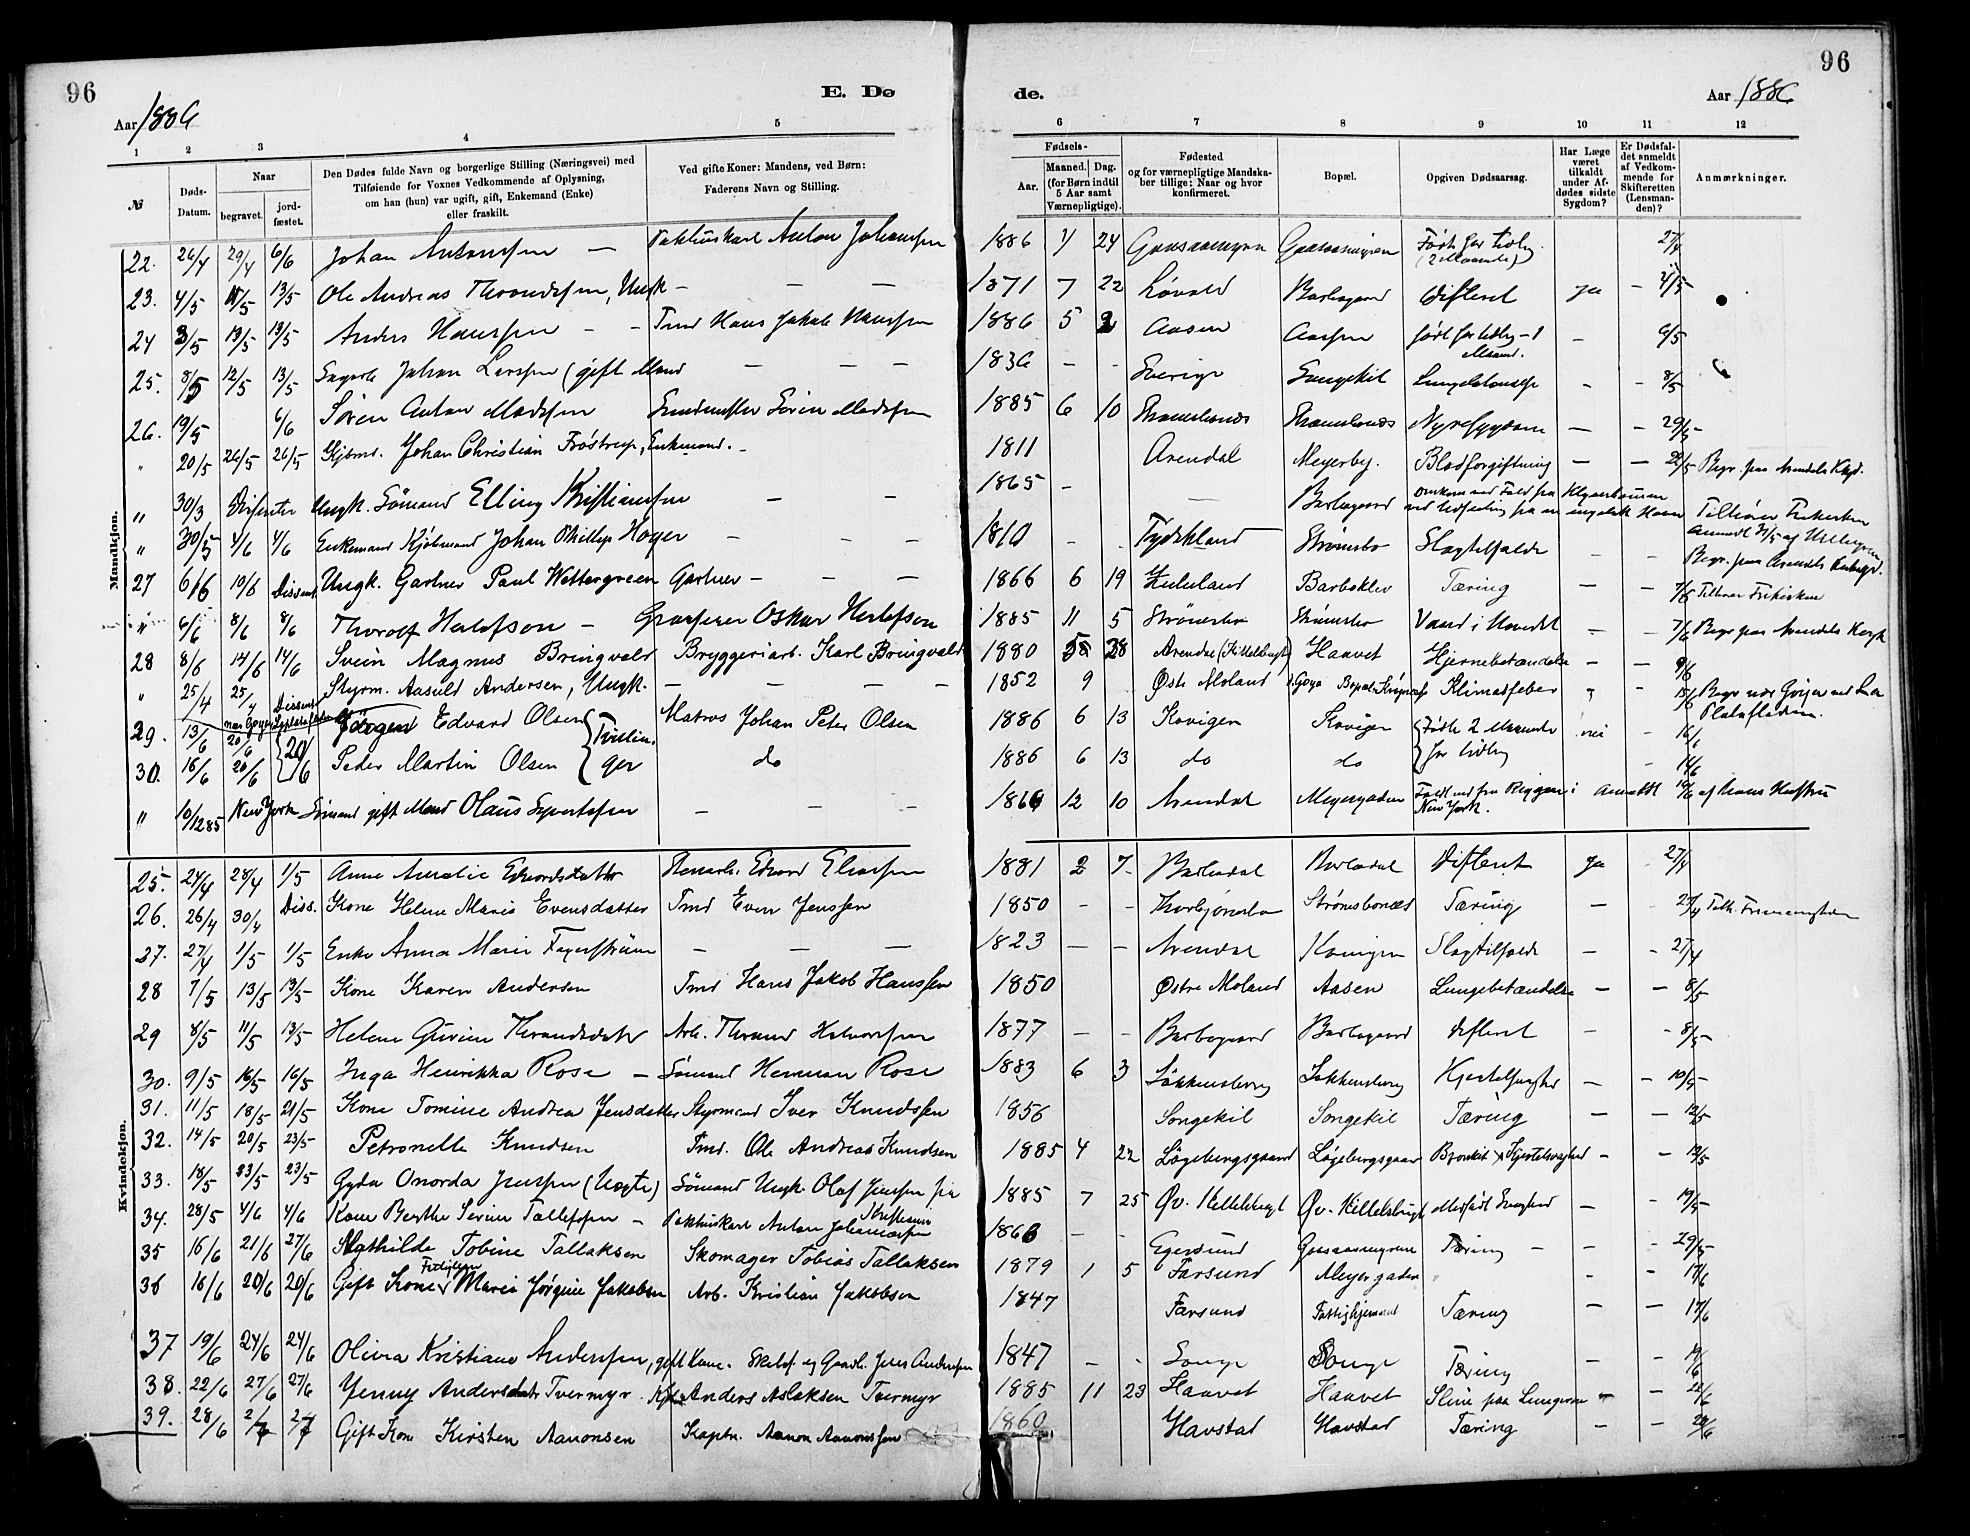 96
E. Dø
de.
96
Aar 1886
Aar 1886.
1 2 3 4 5 6 7 8 9 10 11 12
№
Døds-Datum.
Naar
begravet.
jord-fæstet.
Den Dødes fulde Navn og borgerlige Stilling (Næringsvei) med
Tilføiende for Voxnes Vedkommende af Oplysning,
om han (hun) var ugift, gift, Enkemand (Enke)
eller fraskilt.
Ved gifte Koner: Mandens, ved Børn:
Faderens Navn og Stilling.
Fødsels-
Aar.
Maaned. Dag.
(for Børn indtil
5 Aar samt
Værnepligtige).
Fødested
og for værnepligtige Mandska-
ber tillige: Naar og hvor
konfirmeret.
Bopæl.
Opgiven Dødsaarsag.
Har Læge
været
tilkaldt
under Af-
dødes sidste
Sygdom?
Er Dødsfal-
det anmeldt
af Vedkom-
mende for
Skifteretten
(Lensman-
den)?
Anmærkninger.
Mandkjøn.
22. 26/4 29/4 6/6 Johan Antonssen — Pakhuskarl Anton Johanssen 1886 24 Gaasaamyren Født for tidlig. (2 Maaneder) 27/4
23. 4/5 13/5 Ole Andreas Thorandssen, Ungk — — — 1871 7 22 Løvold Barbogaard Difterit ja — 4/5
24 3/5 13/5 13/5 Anders Hanssen — — Tmd Hans Jakob Hanssen 1886 5 2 Aasen Aasen født for tidlig – 1 Maaned. — 6/5
25. 8/5 12/5 13/5 Johan Larssen (gift Mand — — — 1836 — - Sverige Songekil Lungebetændelse - — 8/5
26. 19/5 6/6 Søren Anton Madssen Søren Madssen 1885 6 10 Strømsbonæs Strømsbonæs Nyresygdom — — 29/5
" 20/5 26/5 26/5 Kjbmd. Johan Christian Frøstrup, Enkemand. - 1811 Arendal Meyerby. Blodforgiftning — — 22/5 Begr. paa Arendals Kgd.
" 30/3 Disenter Ungk. Sømand Elling Kristianssen — — 1865 - — Barbogaard omkom ved Fald fra Klyverbommen ved Udseiling fra en engelsk Havn
Tilhører Frikirken anmeldt 31/5 af
" 30/5 4/6 4/6 Enkemand Kjøbmand Johan Phillip Høyer — — 1810 - - Tydskland Strømsbo Slagtilfælde - — Begr. paa Arendals Kirkegd.
27 6/6 10/6 Dissent. Ungk. Gartner Paul Wettergreen Gartner — — — 1866 6 19 Zululand Barboklev Tæring — — 7/6 Tilhører Frikirken
" 6/6 8/6 8/6 Thorolf Herlofson — Oskar Herlofson 1885 11 5 Strømsbo Strømsbo Vand i Hovedet - — 7/6 Begr. paa Arendals Kgd
28 8/6 14/6 14/6 Svein Magnus Bringvald Bryggeriarb. Karl Bringvald 1880 5 28 Arendal (Kittelsbugt) Haavet Hjernebetændelse — — 9/6
" 25/4 25/4 Dissent Styrm. Aasuld Andersen, Ungk. — — — — — 1852 9 Østr. Moland Klimafeber " - 15/6
29. 13/6 20/6 Jørgen Edvard Olsen Matros Johan Peter Olsen 1886 6 13 Kovigen Kovigen Fødte 2 Maaneder nei - 16/6
{20/6 {Tvillin-ger
30. 16/6 20/6 Peder Martin Olsen do 1886 6 13 do do for tidlig - 16/6
" 10/12 85 New York Sømand gift Mand Olaus Syvertssen — — — 12 10 Arendal Meyergaden Faldt ned fra Riggen i New York. Anmeldt
Kvindekjøn.
25. 24/4 28/4 1/5 Anne Amalie Edvardsdatter Edvard Eliassen 1881 2 7 - Barbodal Barbodal Difterit ja - 27/4
26. 26/4 30/4 Diss. Kone Helene Marie Evensdatter Tmd Even Jenssen 1850 - - Thorbjørnsbo Strømsbonæs Tæring — - 27/4
27. 27/4 1/5 1/5 Enke Anna Marie Fagerstrøm — — — 1823 — - Arendal Kovigen Slagtilfælde — - 27/4
28 7/5 13/5 13/5 Kone Karen Andersen Tmd Hans Jakob Hanssen 1850 Østre Moland Aasen Lungebetændelse — — 8/5
29 8/5 11/5 13/5 Helene Gurine Thorandsdatter Arb. Thorand Halvorssen 1877 — - Barbogaard Barbogaard difterit — - 8/5
30. 9/5 16/5 16/5 Inga Henrikka Rose — Sømand Herman Rose 1883 6 3 Løkkensberg Løkkensberg Kjertelsvaghed — — 10/5
31. 11/5 18/5 21/5 Kone Tomine Andrea Jensdatter Styrmand Iver Knudssen 1856 Songekil Songekil Tæring — — 12/5
32. 14/5 20/5 23/5 Petronelle Knudsen Tmd. Ole Andreas Knudsen 1885 4 22 Løgebergsgaard Løgebergsgaar Bronkit & Kjertelsvaghed - — 19/5
33. 18/5 23/5 23/5 Gyda Onorda Jenssen (Uægte) Sømand Ungk. Olaf Jenssen 1885 7 25 Øv. Kittelsbugt Øv. Kittelsbugt Medfødt Svaghed — - 19/5
34. 28/5 4/6 4/6 Kone Berthe Serine Tallefssen — Pakhuskarl Anton Kristian Johannessen 186 - - Egersund Gaasaamyrene Tæring — — 29/5
35 16/6 21/6 27/6 Mathilde Tobine Tallaksen Skomager Tobias Tallaksen 1879 1 5 Farsund Meyergaden " - — 17/6
36 16/6 20/6 20/6 Gift Kone Marie Jørgine Jakobsen Arb. Kristian Jakobsen 1847 Farsund Fattighjemmet Tæring — — 17/6
37 19/6 24/6 24/6 Olivia Kristiane Anderssen, gift Kone. Jens Anderssen 1847 — - Songe Songe Tæring — — 19/6
38. 22/6 27/6 27/6 Jenny Andersdatr Tvermyr. Anders Aslaksen Tvermyr 1885 11 23 Haavet Haavet Slim paa Lungerne — — 22/6
39. 28/6 2/7 2/7 Gift Kone Kirsten Aanonsen Kaptn. Aanon Aanonssen 1860 Havstad Havstad Tæring — — 28/6